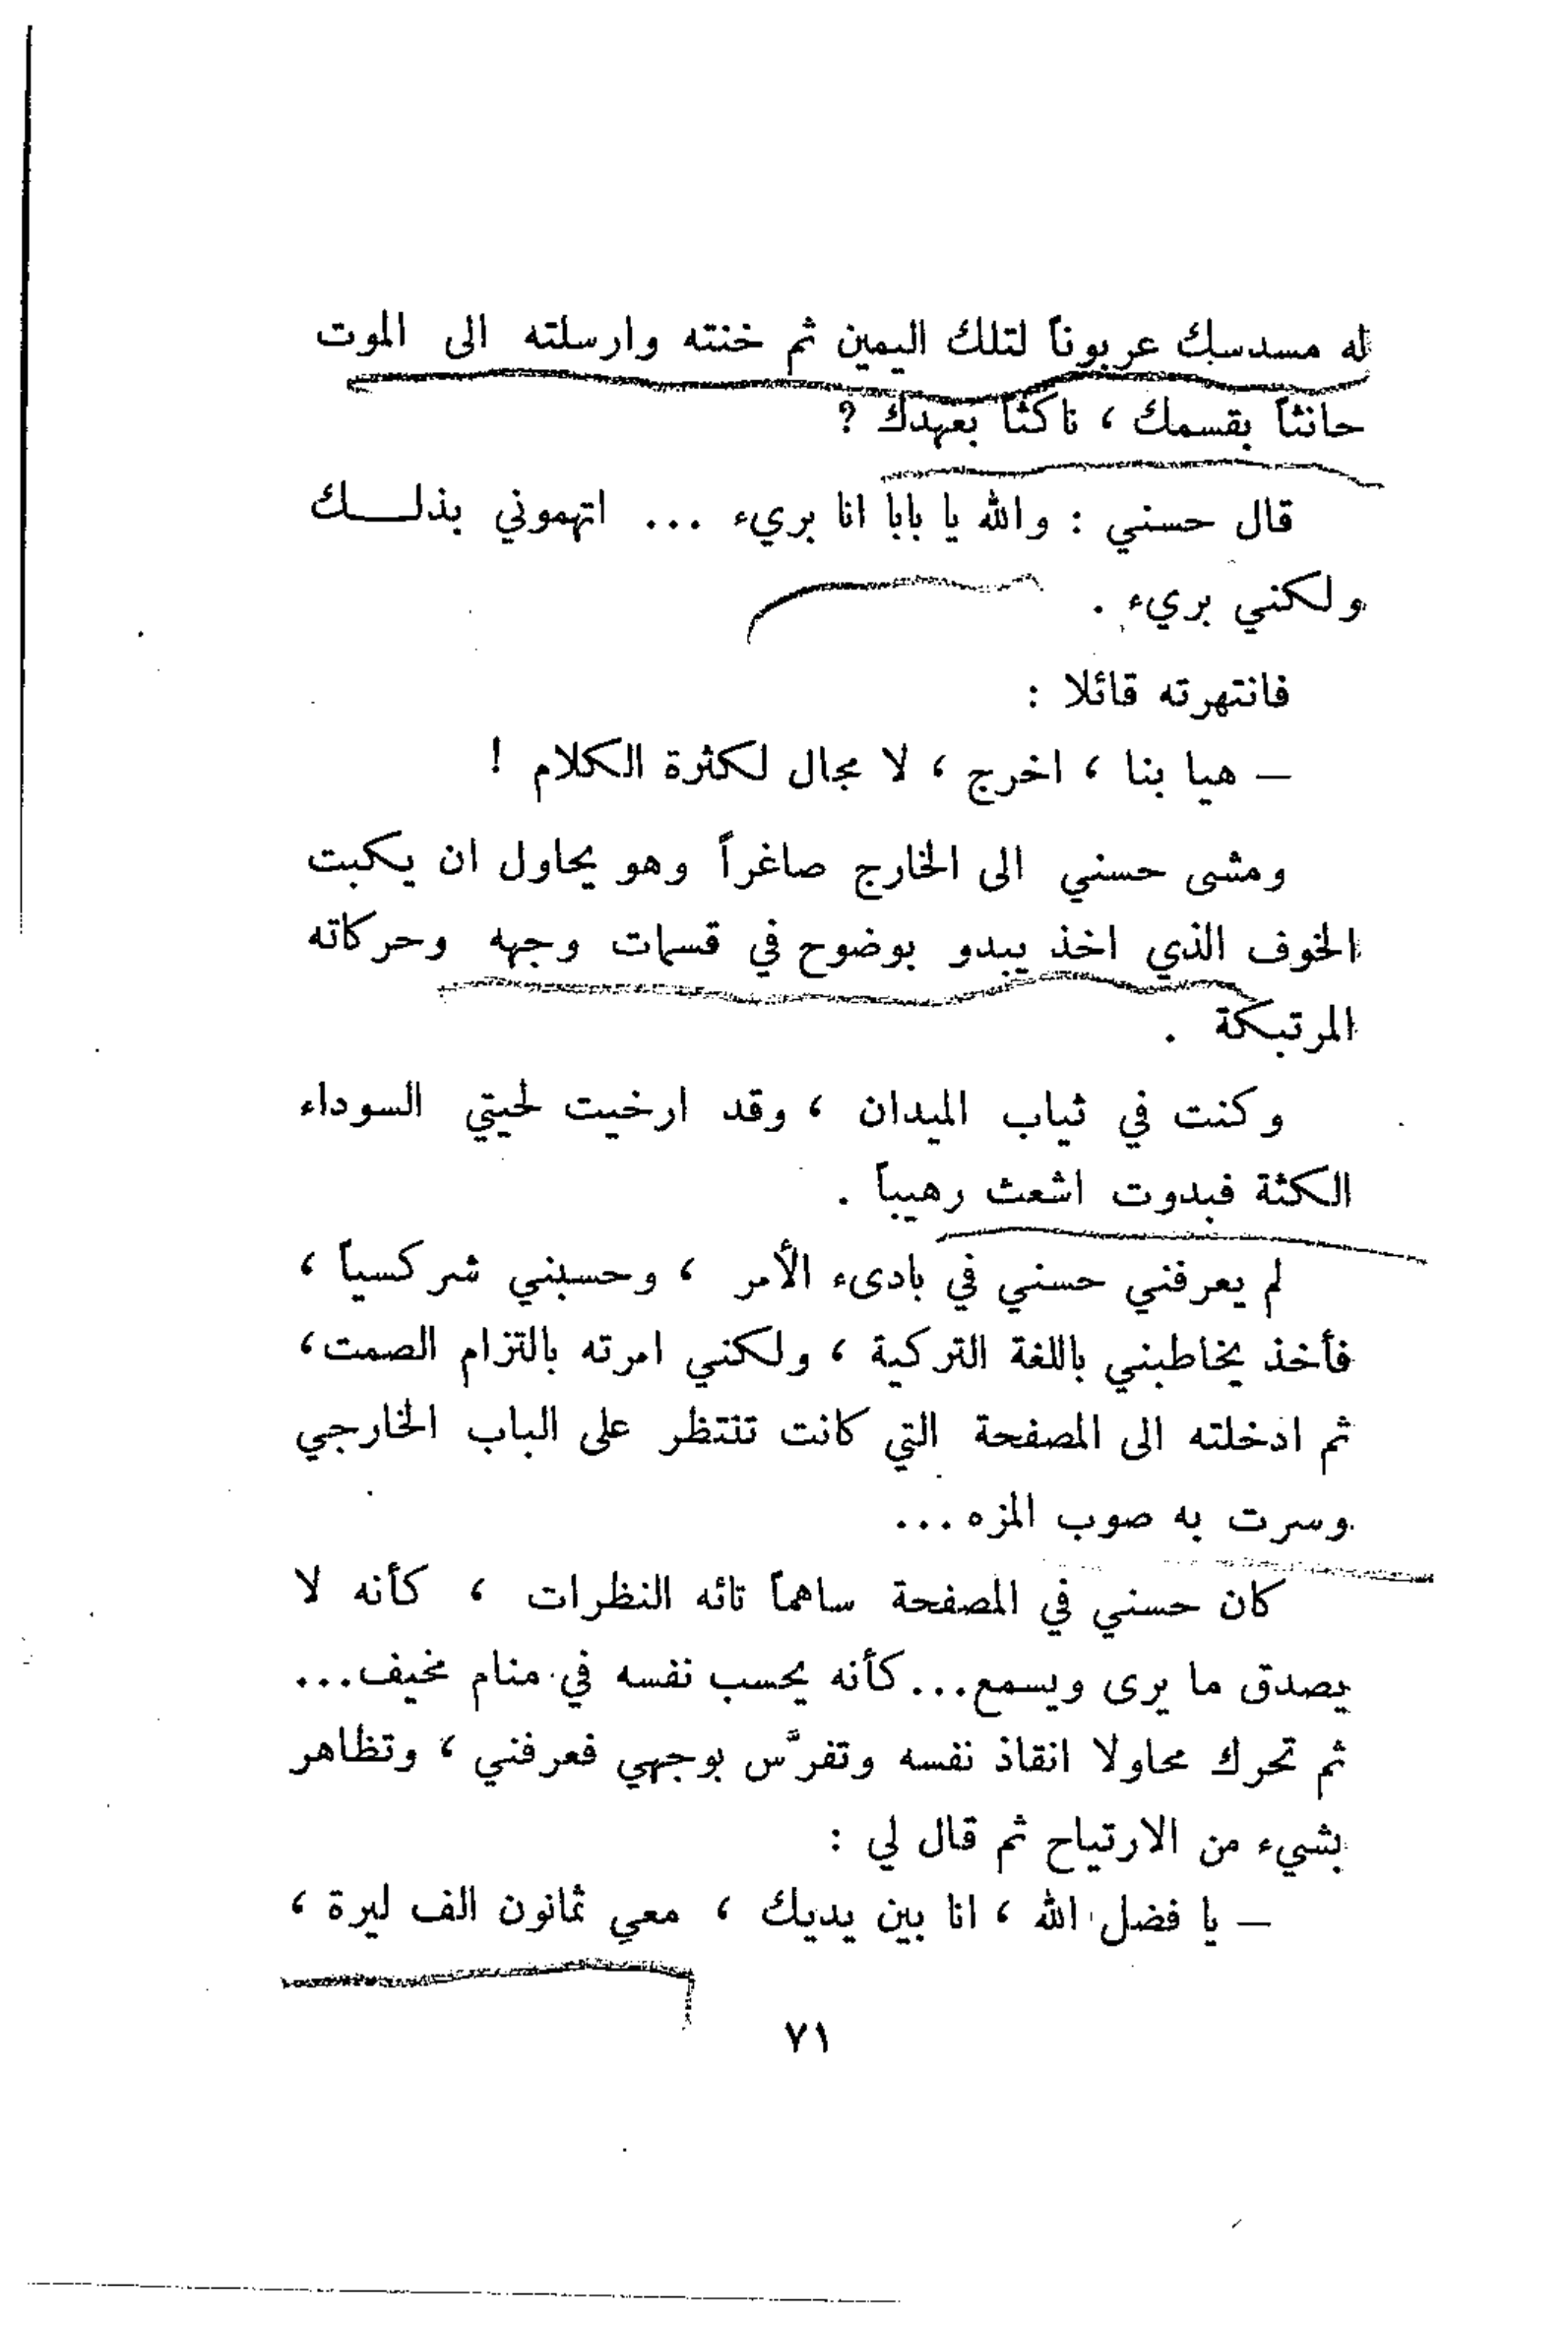 له مسدسك عربوناً لتلك اليمين ثم خنته وارسلته الى الموت
حانثاً بقسمك ، ناكثاً بعهدك ?
قال حسني : والله يا بابا انا بريء ... اتهموني بذلـــك
ولكني بريء .
فانتهرته قائلا :
— هيا بنا ، اخرج ، لا مجال لكثرة الكلام !
ومشى حسني الى الخارج صاغراً وهو يحاول ان يكبت
الخوف الذي اخذ يبدو بوضوح في قسمات وجهه وحركاته
المرتبكة .
وكنت في ثياب الميدان ، وقد ارخيت لحيتي السوداء
الكثة فبدوت اشعث رهيباً .
لم يعرفني حسني في بادىء الأمر ، وحسبني شركسياً ،
فأخذ يخاطبني باللغة التركية ، ولكني امرته بالتزام الصمت،
ثم ادخلته الى المصفحة التي كانت تنتظر على الباب الخارجي
وسرت به صوب المزه ...
كان حسني في المصفحة ساهماً تائه النظرات ، كأنه لا
يصدق ما يرى ويسمع... كأنه يحسب نفسه في منام مخيف...
ثم تحرك محاولا انقاذ نفسه وتفرَّس بوجهي فعرفني ، وتظاهر
بشيء من الارتياح ثم قال لي :
— يا فضل الله ، انا بين يديك ، معي ثمانون الف ليرة ،
٧١